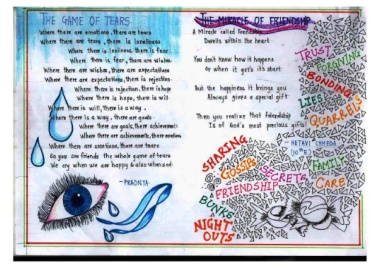 THE GAME OF TEARS
Where there are emotions, there are tears
Where there are tears, there is loneliness
Where there is loneliness, there is fear
Where there is fear, there are wishes
Where there are wishes, there are expectations
Where there are expectations, there is rejection
Where there is rejection, there is hope
Where there is hope, there is will
Where there is will, there is a way
Where there is a way, there are goals
Where there are goals, there are achievements
Where there are achievements, there are emotions
Where there are emotions, there are tears
So you see friends the whole game of tears
We cry when we are happy & also when sad
- PRADNYA
THE MIRACLE OF FRIENDSHIP
A Miracle called Friendship
Dwells within the heart
You don't know how it happens
Or when it gets it's start
But the happiness it brings you
Always gives a special gift
Then you realize that Friendship
Is of God's most precious gifts
- HETAVI CHHEDA
TRUST
FORGIVING
BONDING
LIES
QUARRELS
SHARING
GOSSIPS
SECRETS
FAMILY
CARE
FRIENDSHIP
BUNKS
NIGHT
OUTS